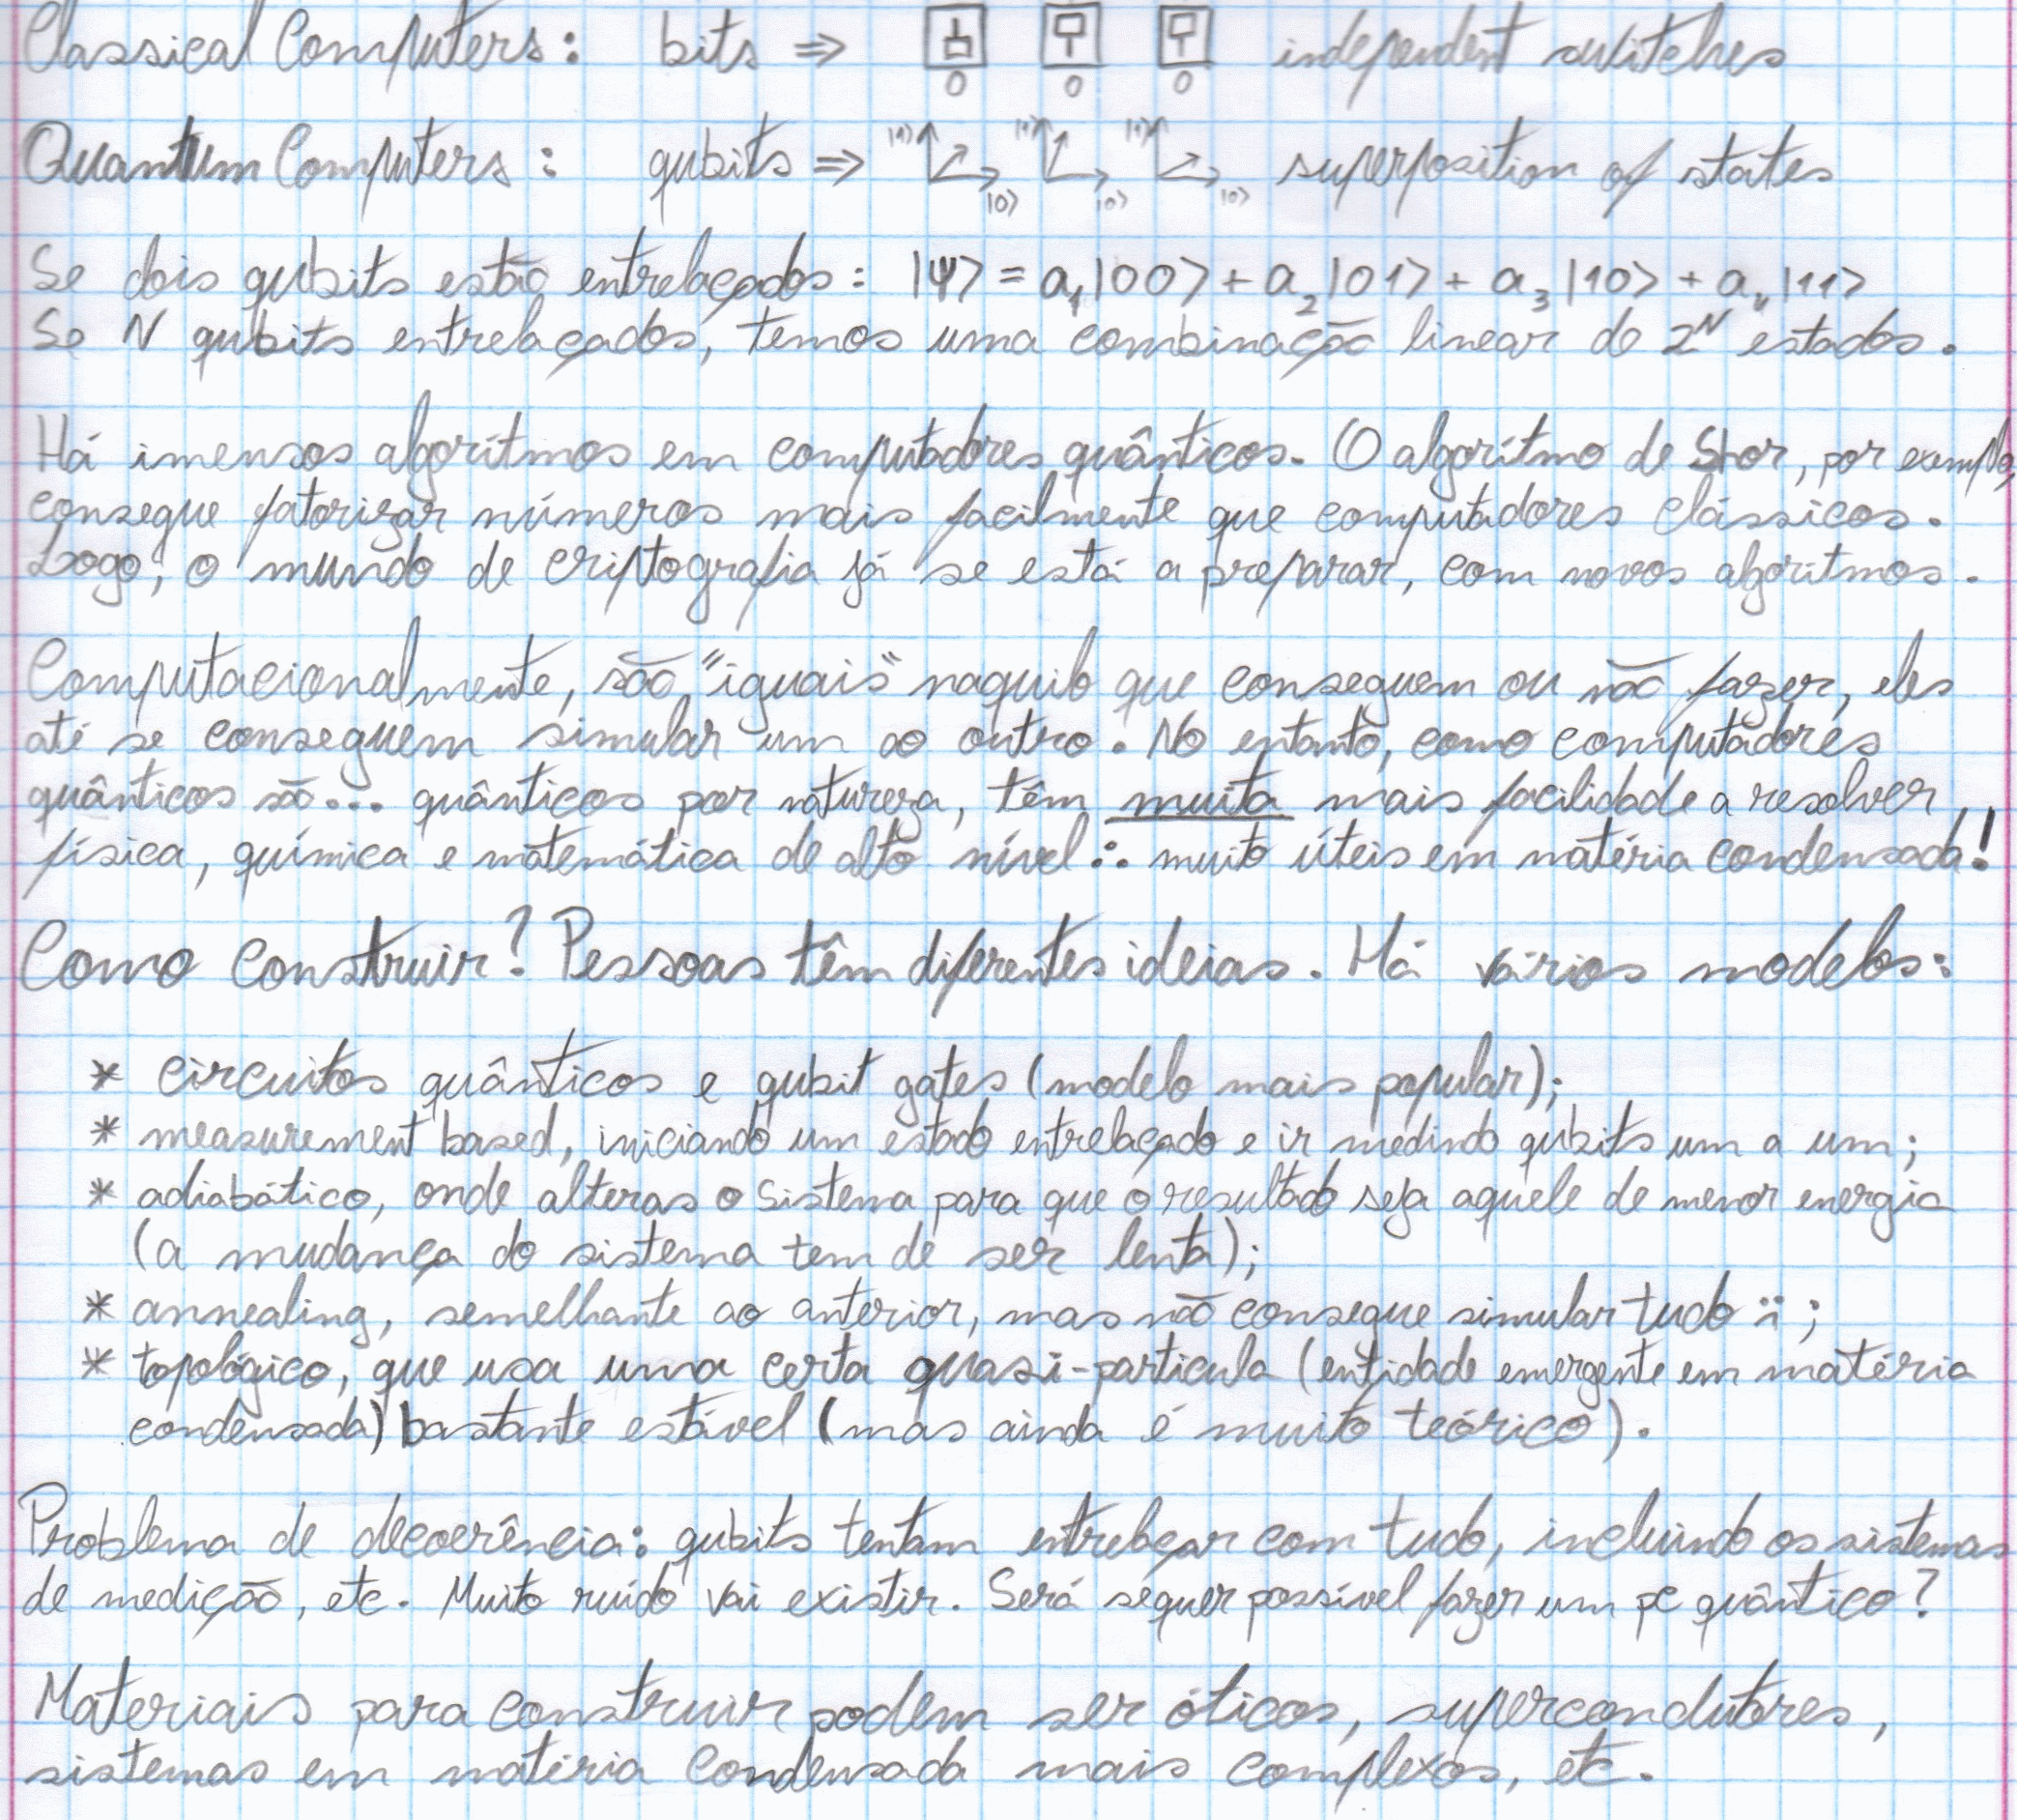 Classical Computers: bits ⇒ 0 0 0 independent switches
Quantum Computers: qubits ⇒ |1⟩ |0⟩ |1⟩ |0⟩ |1⟩ |0⟩ superposition of states
Se dois qubits estão entrelaçados: |Ψ⟩ = a₁|00⟩ + a₂|01⟩ + a₃|10⟩ + a₄|11⟩
Se N qubits entrelaçados, temos uma combinação linear de 2ᴺ estados.
Há imensos algorítmos em computadores quânticos. O algorítmo de Shor, por exemplo,
consegue fatorizar números mais facilmente que computadores clássicos.
Logo, o mundo de criptografia já se está a preparar, com novos algorítmos.
Computacionalmente, são "iguais" naquilo que conseguem ou não fazer, eles
até se conseguem simular um ao outro. No entanto, como computadores
quânticos são... quânticos por natureza, têm muita mais facilidade a resolver
física, química e matemática de alto nível ∴ muito úteis em matéria condensada!
Como construir? Pessoas têm diferentes ideias. Há vários modelos:
* circuitos quânticos e qubit gates (modelo mais popular);
* measurement based, iniciando um estado entrelaçado e ir medindo qubits um a um;
* adiabático, onde alteras o sistema para que o resultado seja aquele de menor energia
(a mudança do sistema tem de ser lenta);
* annealing, semelhante ao anterior, mas não consegue simular tudo :̈ ;
* topológico, que usa uma certa quasi-particula (entidade emergente em matéria
condensada) bastante estável (mas ainda é muito teórico).
Problema de decoerência: qubits tentam entrelaçar com tudo, incluindo os sistemas
de medição, etc. Muito ruído vai existir. Será sequer possível fazer um pc quântico?
Materiais para construir podem ser óticos, supercondutores,
sistemas em matéria condensada mais complexos, etc.